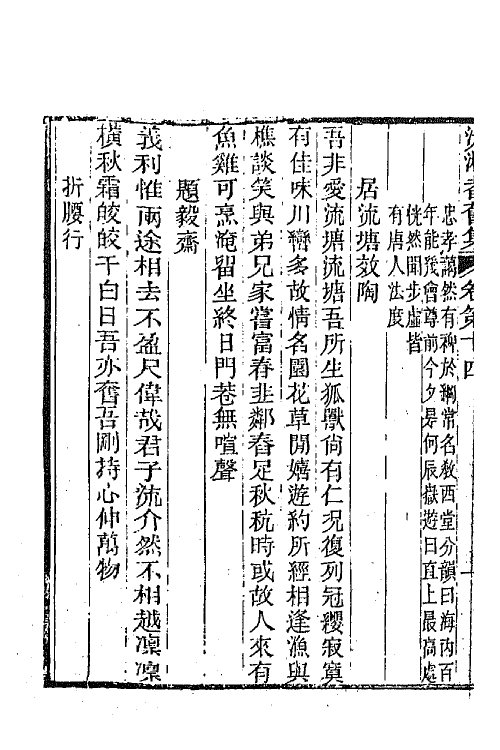 沅湘耆舊集 卷第十四
忠孝藹然有裨於綱常名敎西堂分韻曰海内百
年能幾會尊前今夕是何辰嶽遊曰直上最高處
恍然閒步虛皆
有唐人法度
居流塘效陶
吾非愛流塘流塘吾所生狐獸尙有仁況復列冠纓寂寞
有佳味川巒多故情名園花草開嬉遊約所經相逢漁與
樵談笑與弟兄家嘗富春韭鄰舂足秋秔時或故人來有
魚雞可烹淹畱坐終日門巷無喧聲
題毅齋
義利惟兩途相去不盈尺偉哉君子流介然不相越凜凜
橫秋霜皎皎干白日吾亦奮吾剛持心伸萬物
折腰行